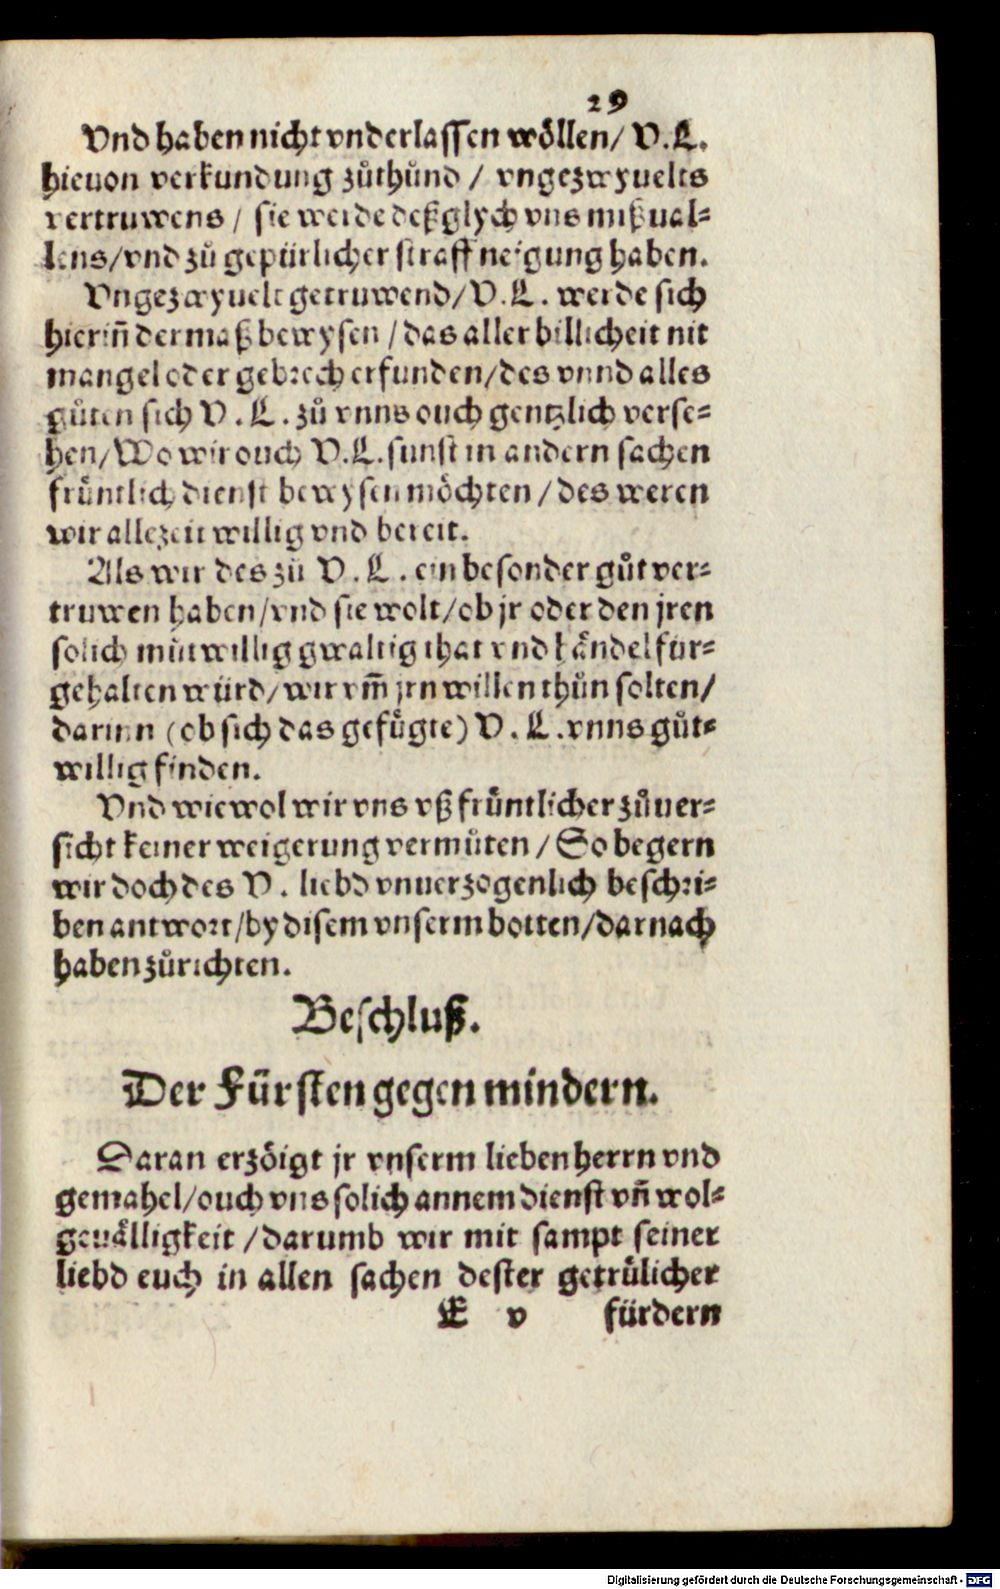 29
Vnd haben nicht vnderlassen wöllen/ V.L.
hieuon verkundung zůthůnd / vngezwyuelts
vertruwens / sie werde deßglych vns mißual-
lens/vnd zů gepürlicher straff neigung haben.
Vngezwyuelt getruwend/V.L. werde sich
hierin̄ dermaß bewysen /das aller billicheit nit
mangel oder gebrech erfunden/des vnnd alles
gůten sich V.L. zů vnns ouch gentzlich verse-
hen/Wo wir ouch V.L. sunst in andern sachen
früntlich dienst bewysen möchten /des weren
wir allezeit willig vnd bereit.
Als wir des zů V.L. ein besonder gůt ver-
truwen haben/vnd sie wolt/ob jr oder den jren
solich můtwillig gwaltig that vnd händel für-
gehalten würd/wir vm̄ jrn willen thůn solten/
darinn (ob sich das gefůgte) V.L. vnns gůt-
willig finden.
Vnd wiewol wir vns vß früntlicher zůuer-
sicht keiner weigerung vermůten /So begern
wir doch des V. liebd vnuerzogenlich beschri-
ben antwort/by disem vnserm botten/darnach
haben zůrichten.
Beschluß.
Der Fürsten gegen mindern.
Daran erzöigt jr vnserm lieben herrn vnd
gemahel/ouch vns solich annem dienst vn̄ wol-
geuälligkeit /darumb wir mit sampt seiner
liebd euch in allen sachen dester getrülicher
E v fürdern
Digitalisierung gefördert durch die Deutsche Forschungsgemeinschaft - DFG